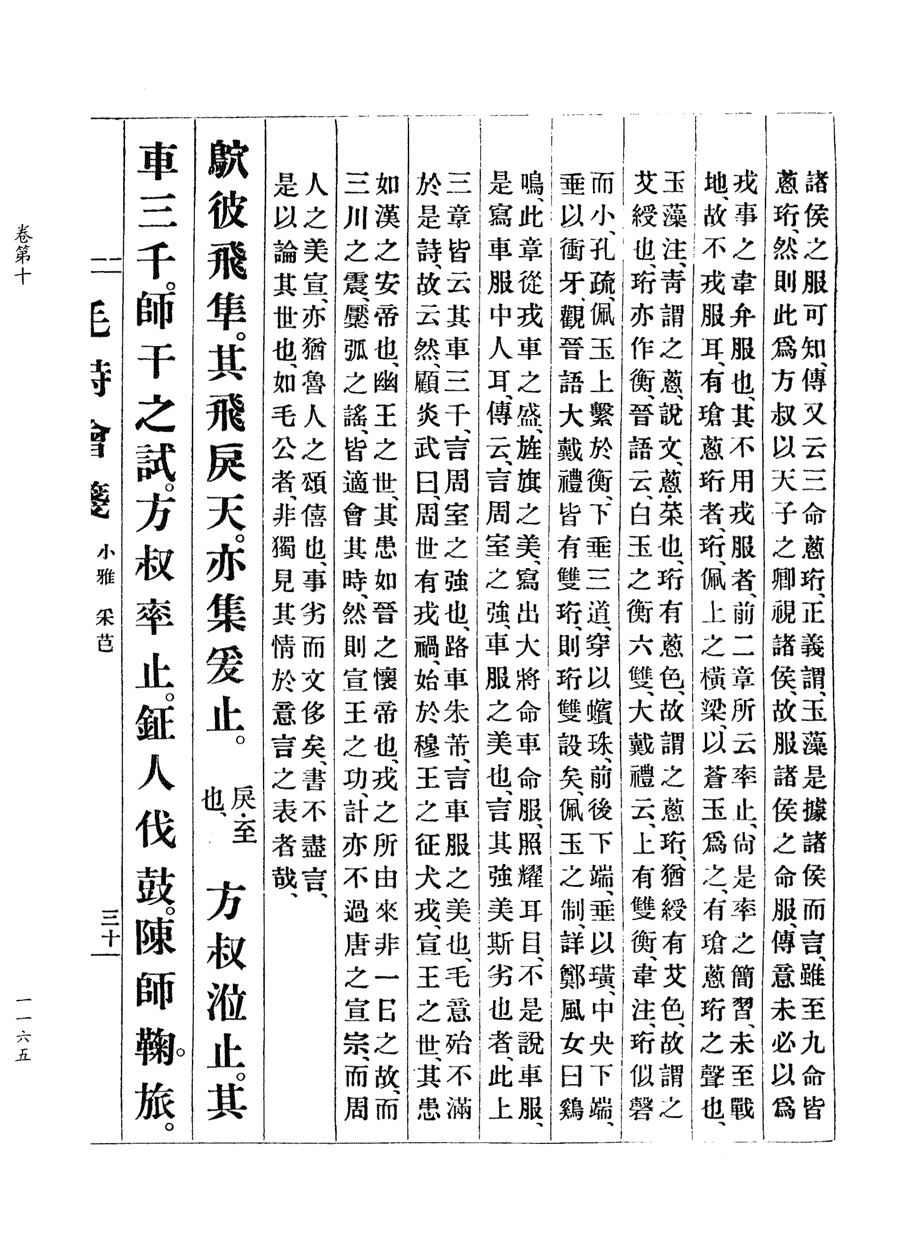 諸侯之服可知、傳又云三命蔥珩、正義謂、玉藻是據諸侯而言、雖至九命皆
蔥珩、然則此爲方叔以天子之卿視諸侯、故服諸侯之命服、傳意未必以爲
戎事之韋弁服也、其不用戎服者、前二章所云率止、尙是率之簡習、未至戰
地、故不戎服耳、有瑲蔥珩者、珩、佩上之橫梁、以蒼玉爲之、有瑲蔥珩之聲也、
玉藻注、靑謂之蔥、說文、蔥・菜也、珩有蔥色、故謂之蔥珩、猶綬有艾色、故謂之
艾綬也、珩亦作衡、晉語云、白玉之衡六雙、大戴禮云、上有雙衡、韋注、珩似磬
而小、孔疏、佩玉上繫於衡、下垂三道、穿以蠙珠、前後下端、垂以璜、中央下端、
垂以衝牙、觀晉語大戴禮皆有雙珩、則珩雙設矣、佩玉之制、詳鄭風女曰鷄
鳴、此章從戎車之盛、旌旗之美、寫出大將命車命服、照耀耳目、不是說車服、
是寫車服中人耳、傳云、言周室之強、車服之美也、言其強美斯劣也者、此上
三章皆云其車三千、言周室之強也、路車朱芾、言車服之美也、毛意殆不滿
於是詩、故云然、顧炎武曰、周世有戎禍、始於穆王之征犬戎、宣王之世、其患
如漢之安帝也、幽王之世、其患如晉之懷帝也、戎之所由來非一日之故、而
三川之震、檿弧之謠、皆適會其時、然則宣王之功、計亦不過唐之宣宗、而周
人之美宣、亦猶魯人之頌僖也、事劣而文侈矣、書不盡言、
是以論其世也、如毛公者、非獨見其情於意言之表者哉、
鴥彼飛隼。其飛戾天。亦集爰止。戾・至也、方叔涖止。其
車三千。師干之試。方叔率止。鉦人伐鼓。陳師鞠旅。
毛詩會箋 小雅 采芑 三十
卷第十
一一六五